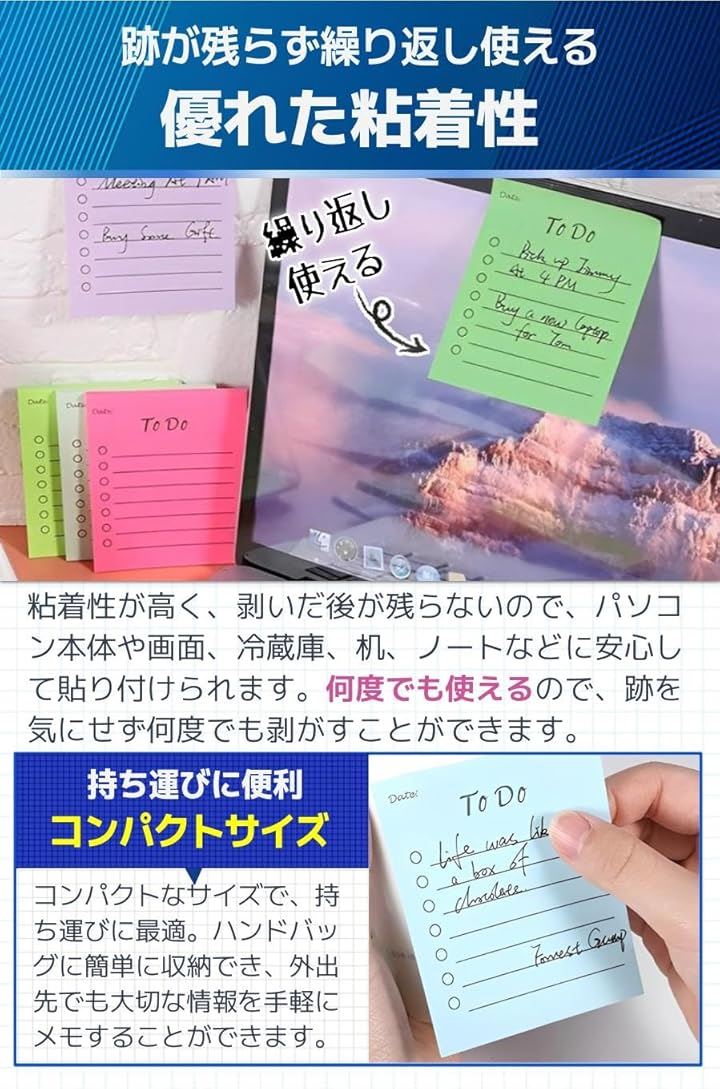 跡が残らず繰り返し使える
優れた粘着性
Meeting At 7AM
Buy Some Gift
繰り返し
使える
Date:
To Do
Pick up Tommy
At 4 PM
Buy a new laptop
for Tom
Date:
Date:
Date:
To Do
粘着性が高く、剥いだ後が残らないので、パソコ
ン本体や画面、冷蔵庫、机、ノートなどに安心し
て貼り付けられます。何度でも使えるので、跡を
気にせず何度でも剥がすことができます。
持ち運びに便利
コンパクトサイズ
コンパクトなサイズで、持
ち運びに最適。ハンドバッ
グに簡単に収納でき、外出
先でも大切な情報を手軽に
メモすることができます。
Date:
To Do
Life was lik
a box of
chocolate.
Forrest Gump